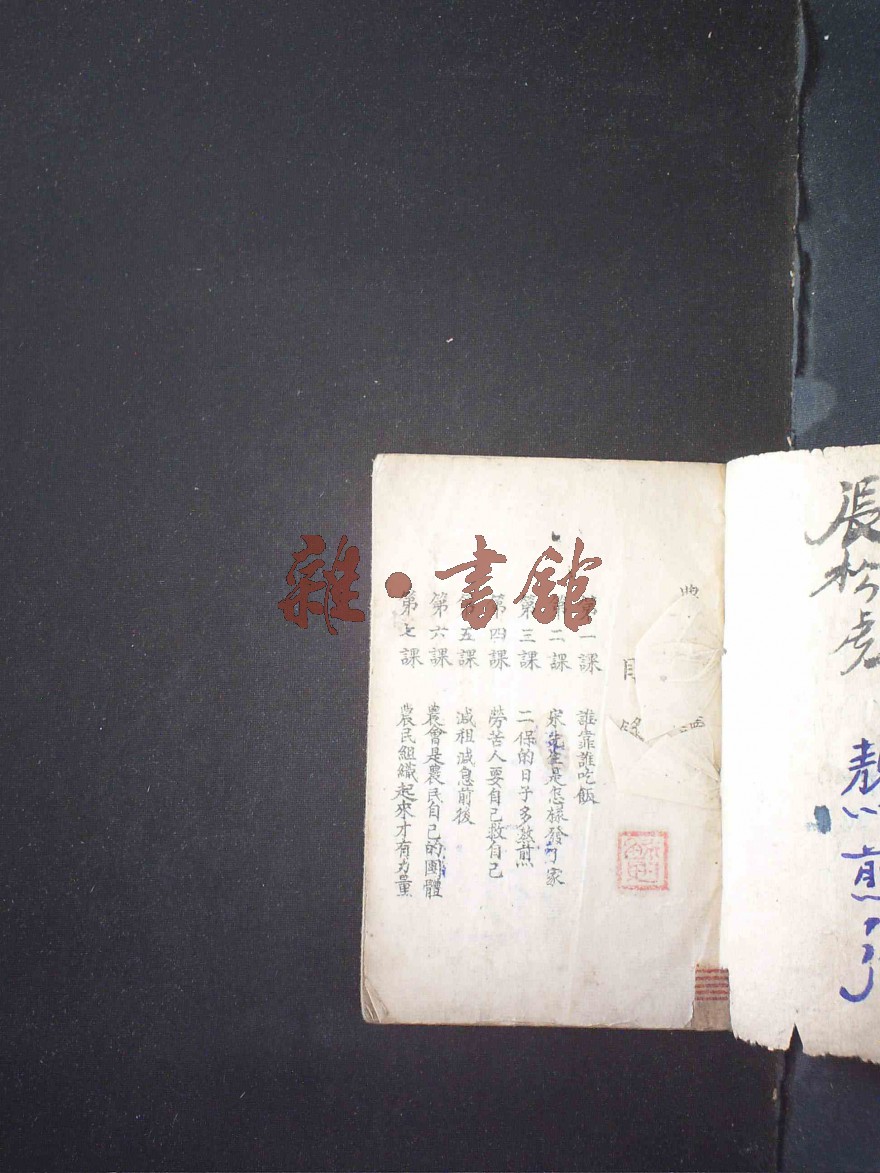 張松虎
煎
目
第一課 誰靠誰吃飯
第二課 宋先生是怎樣發了家
第三課 二保的日子多熬煎
第四課 勞苦人要自己救自己
第五課 減租減息前後
第六課 農會是農民自己的團體
第七課 農民組織起來才有力量
雜·書舘